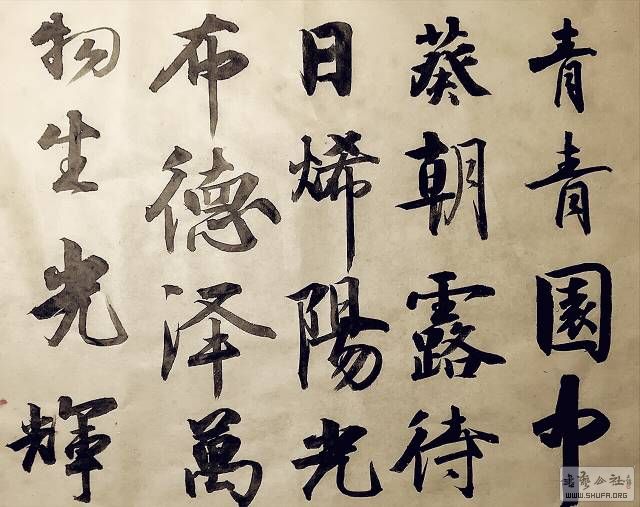 青青園中
葵朝露待
日烯陽光
布德泽萬
物生光輝
WWW.SHUFA.ORG